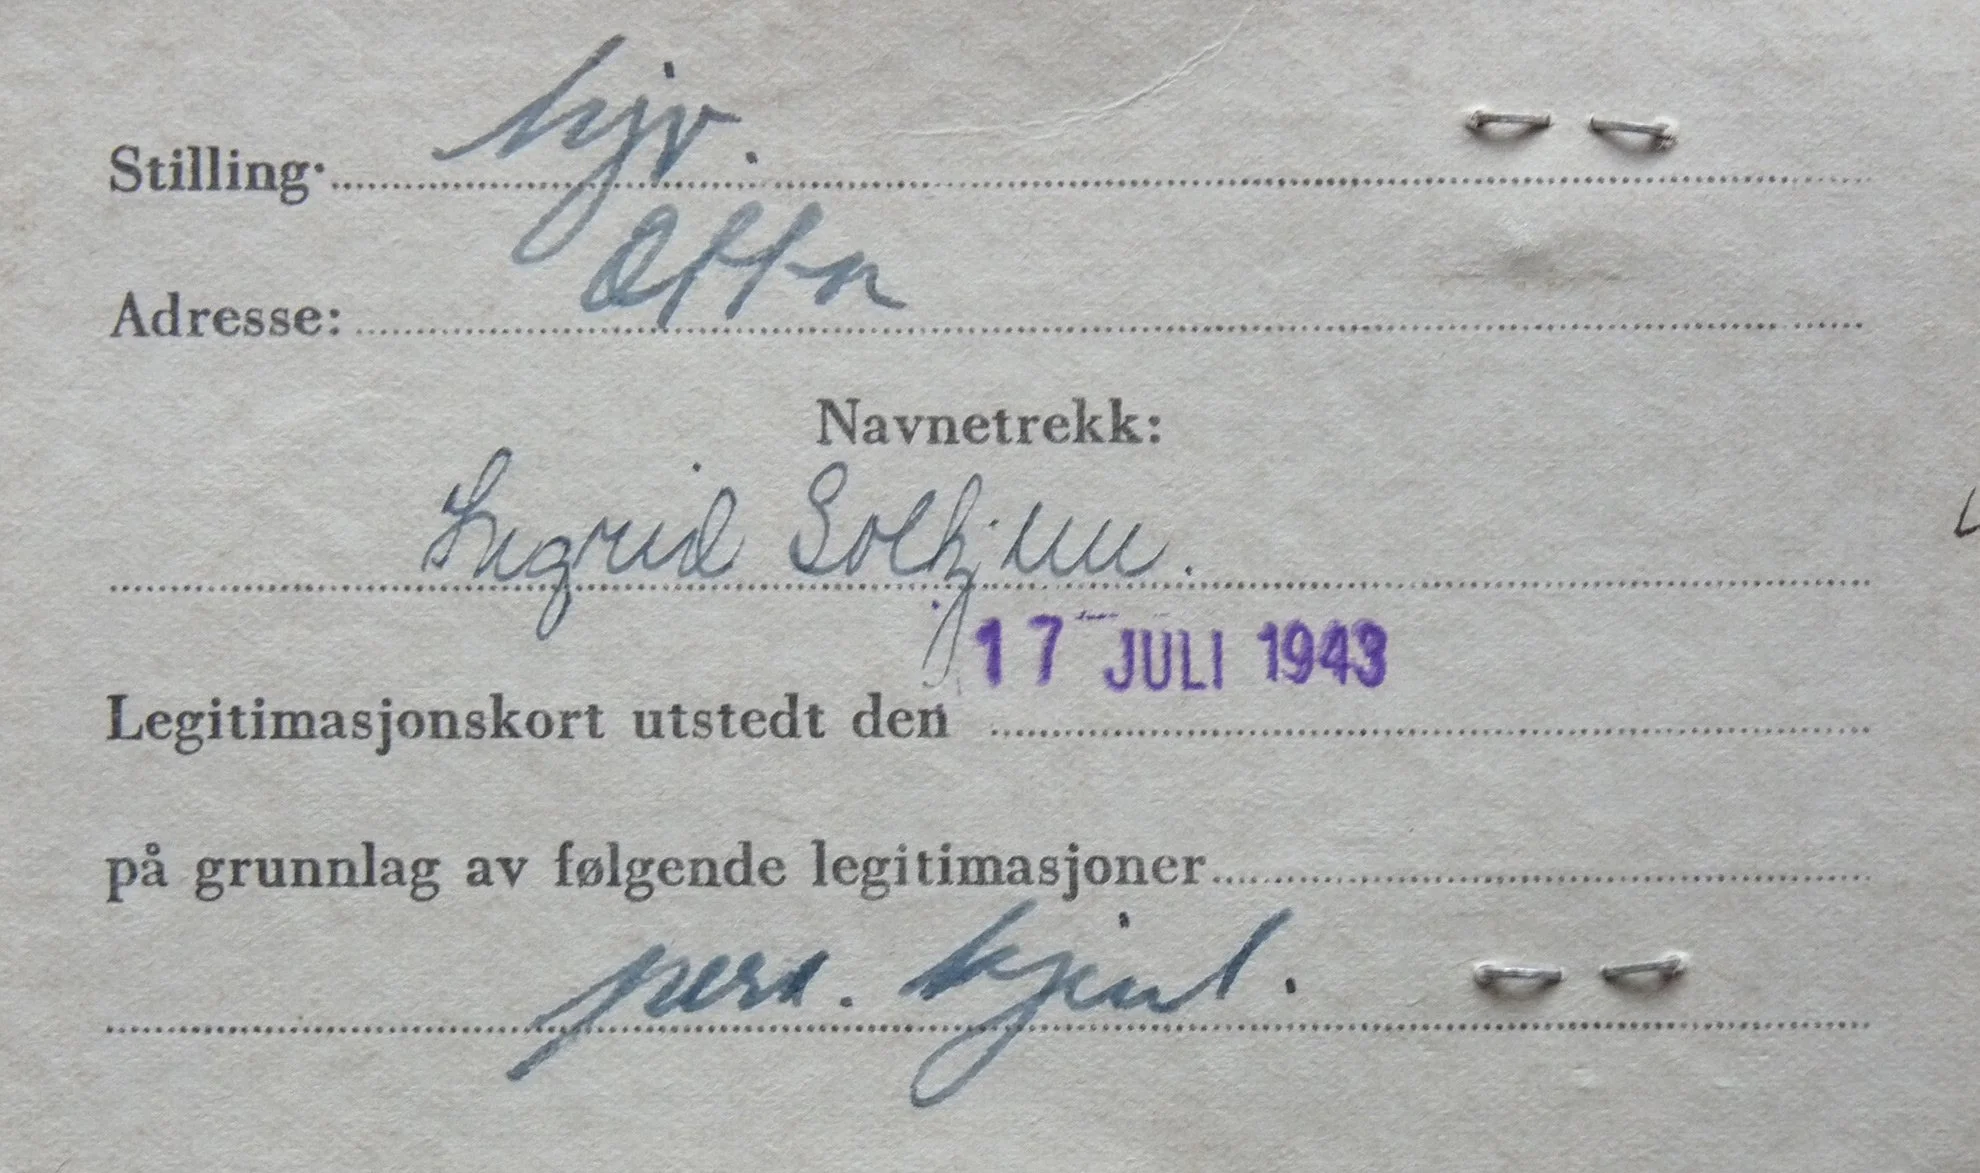 Stilling: hjv.
Adresse: Otta
Navnetrekk:
Ingrid Solhjem.
17 JULI 1943
Legitimasjonskort utstedt den
på grunnlag av følgende legitimasjoner
pers. kjent.